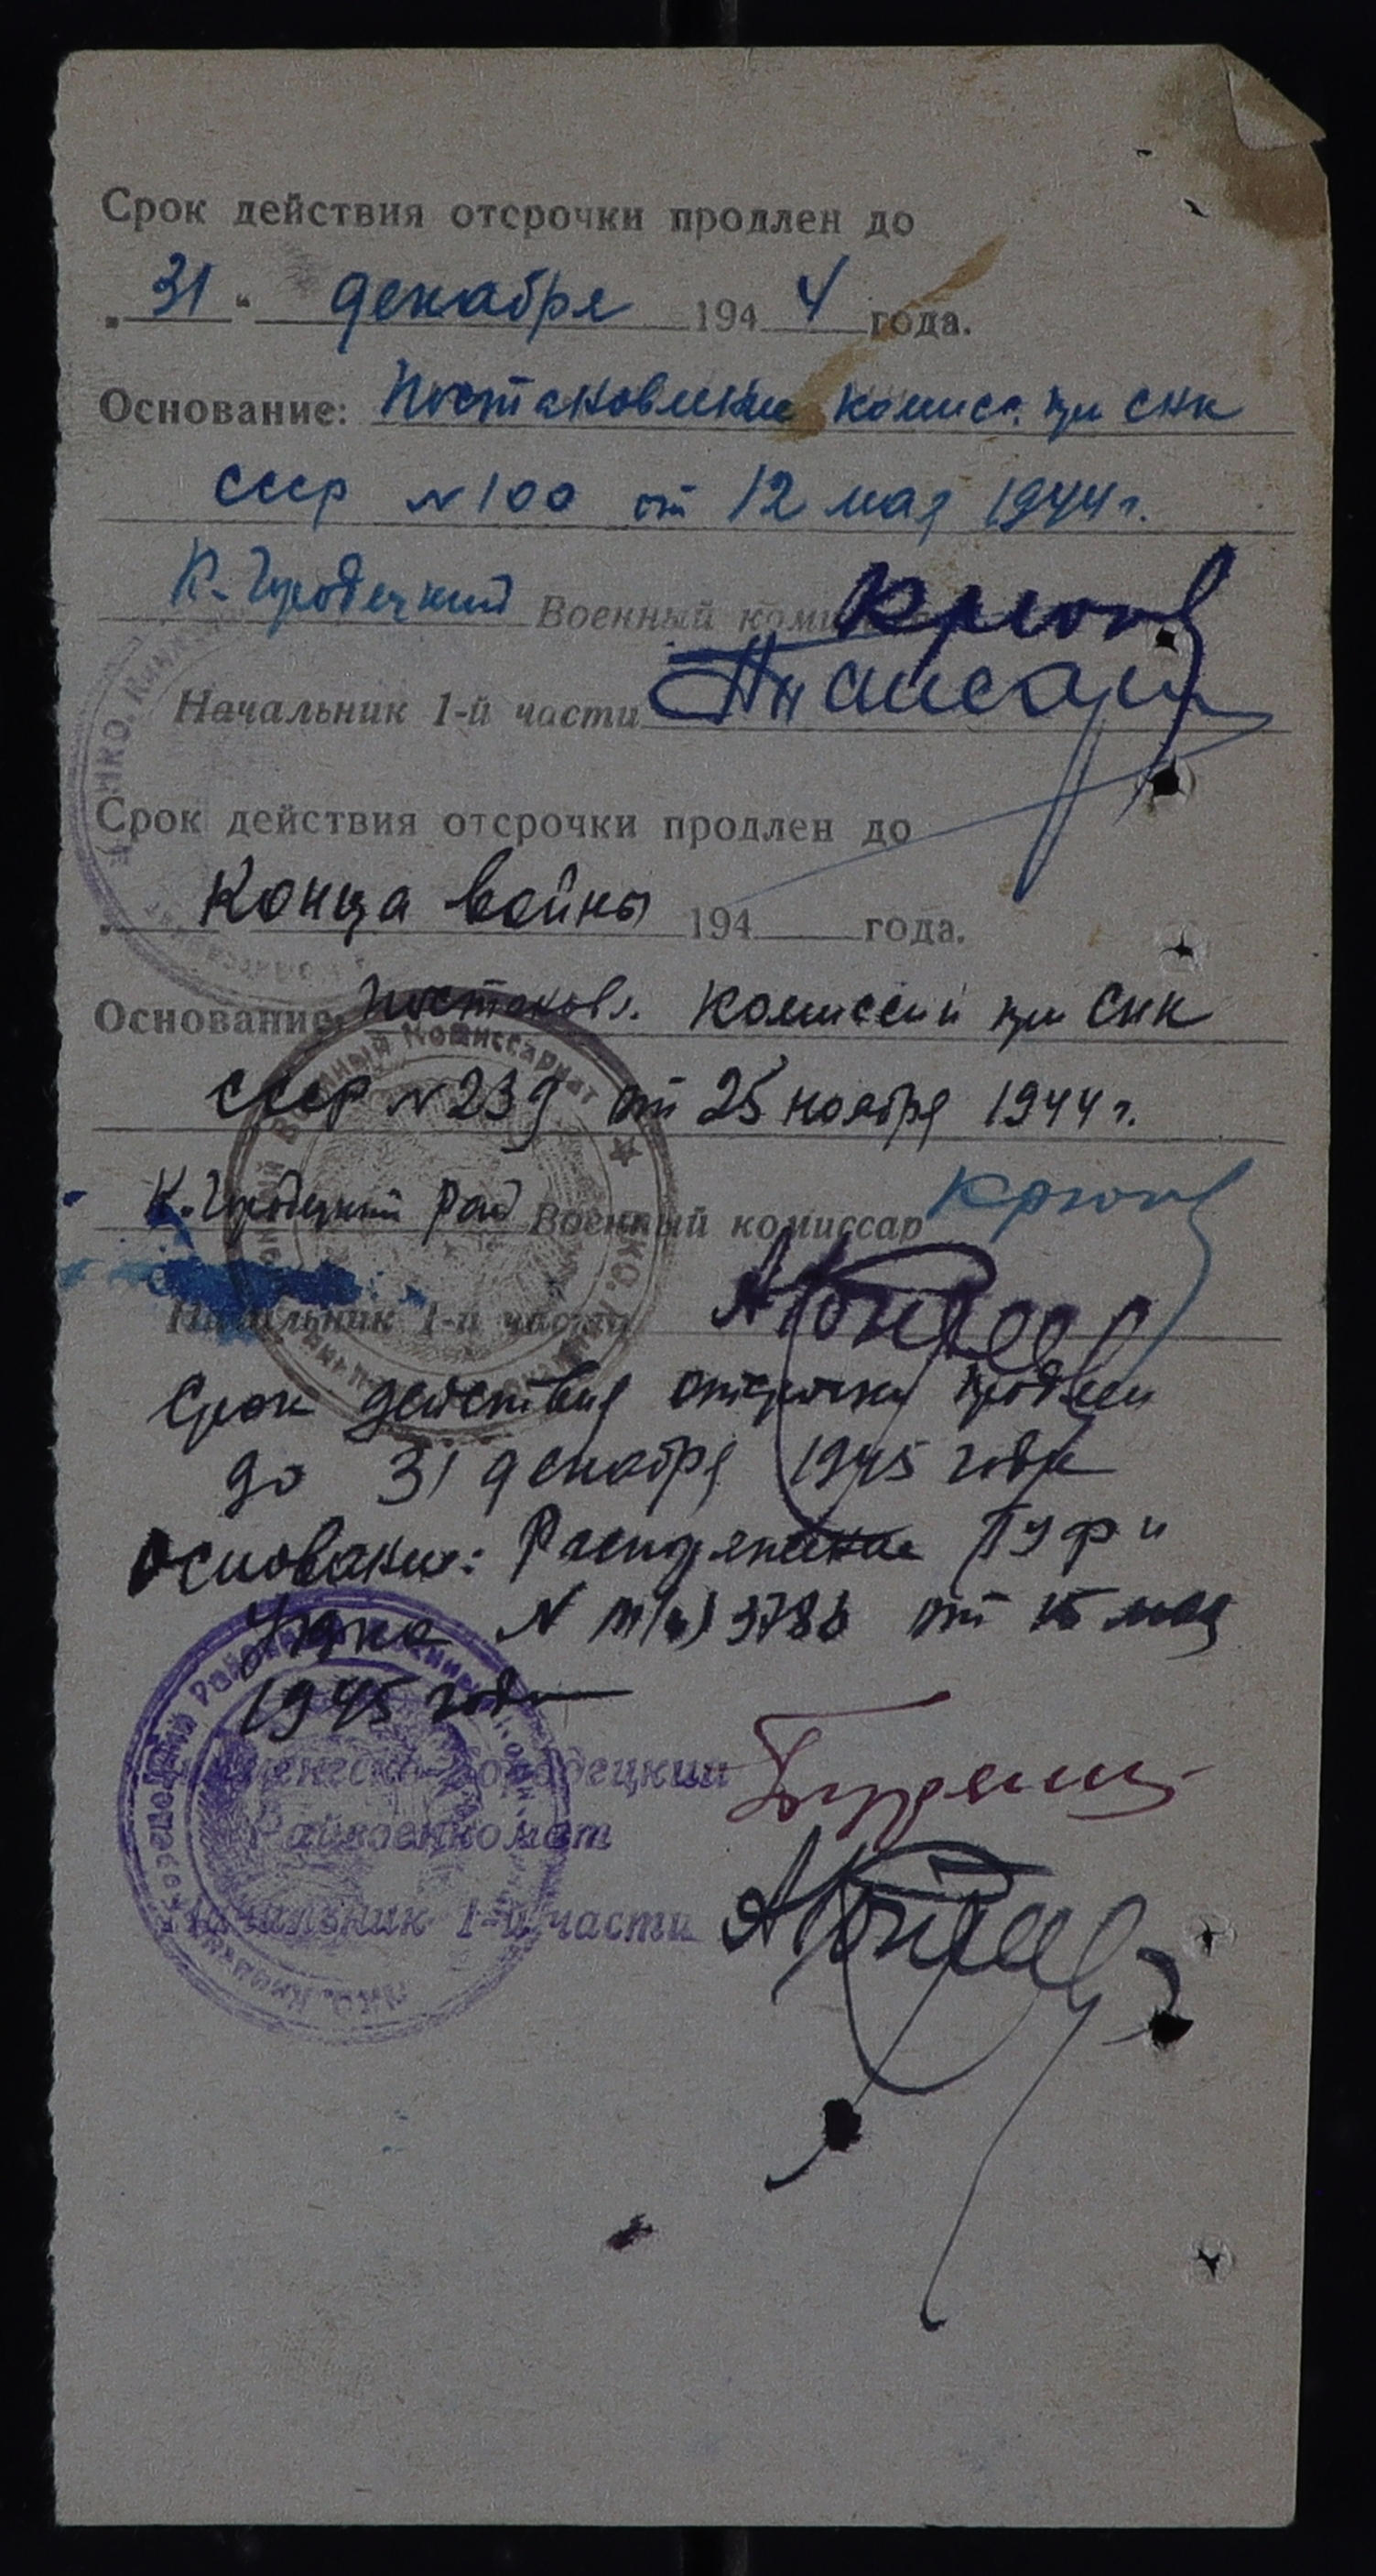 Срок действия отсрочки продлен до
„31“ декабря 1944 года.
Основание: Постановление комисс. при СНК
СССР №100 от 12 мая 1944 г.
К.-Городецкий Военный
Крюк
Начальник 1-й части
Срок действия отсрочки продлен до
„Конца войны 194 года.
Основание: Постановл. Комиссии при СНК
СССР №239 от 25 ноября 1944 г.
К.-Городецкий Рай Военный комиссар
Начальник 1-й части
Срок действия отсрочки продлен
до 31 декабря 1945 года
Основание: Распоряжение ГУФ и
УКРКА № 3786 от 15 мая
1945 года
Городецкий
Райвоенкомат
Начальник 1-й части
Военный Комиссариат